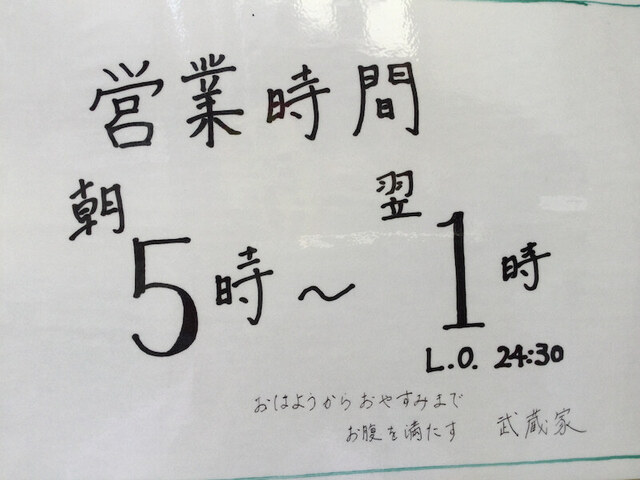 営業時間
朝5時〜翌1時
L.O. 24:30
おはようからおやすみまで
お腹を満たす 武蔵家